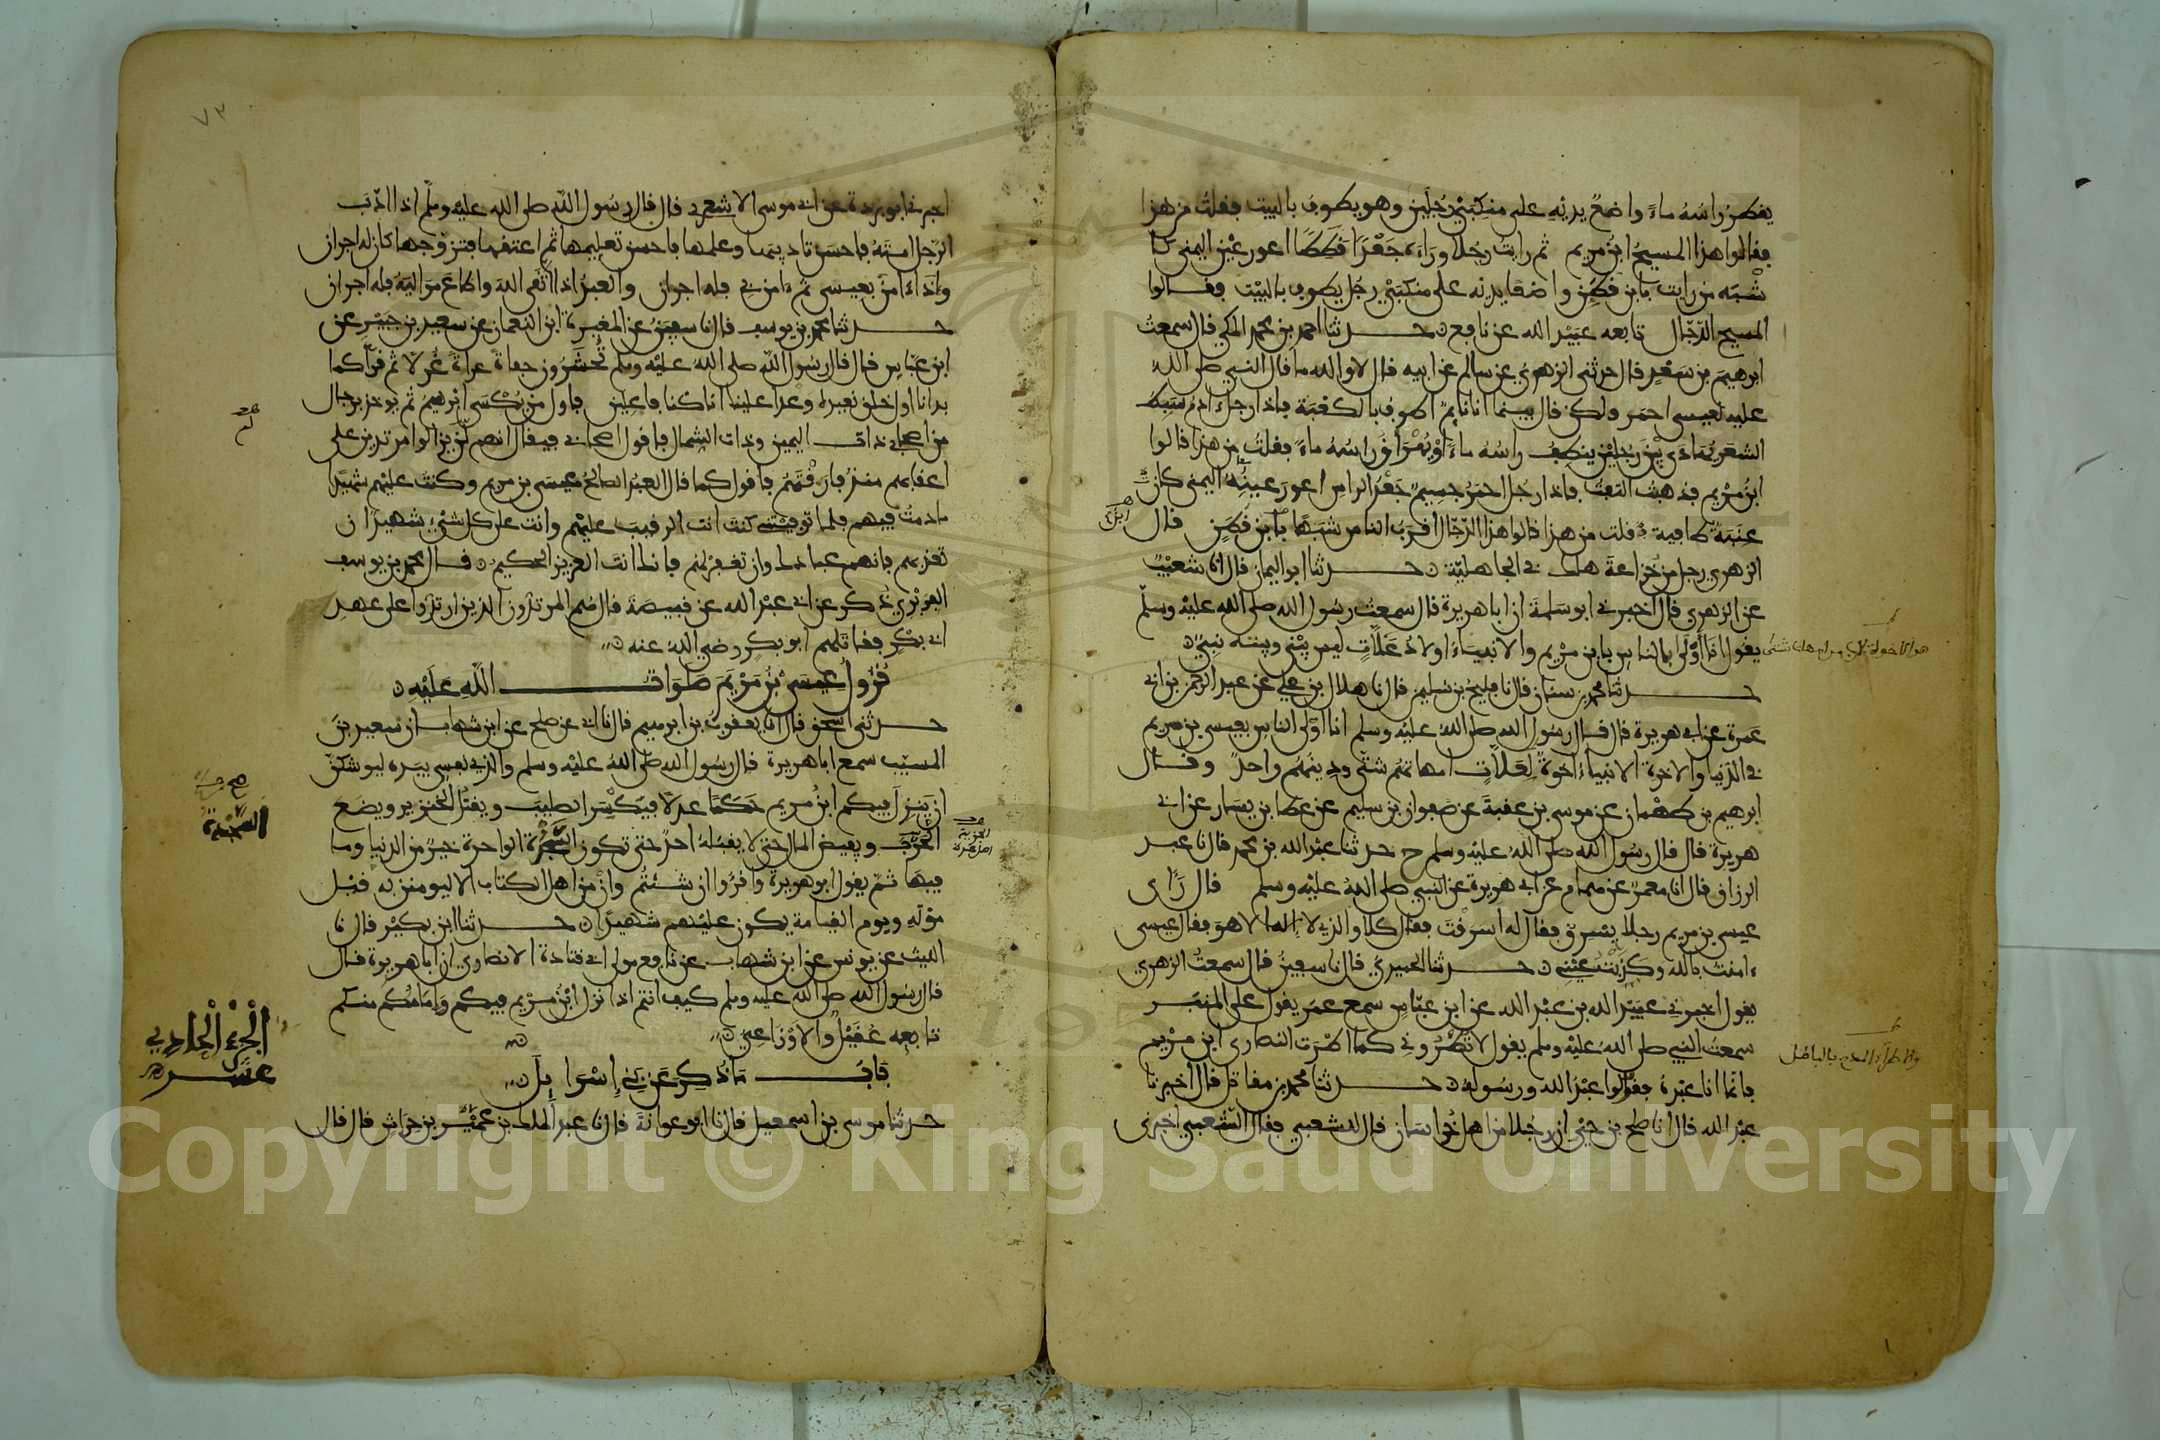 يقطر راسه ماء واضع يديه على منكبي رجلين وهو يطوف بالبيت فقلت من هذا
فقالوا هذا المسيح ابن مريم ثم رايت رجلا وراءه جعدا قططا اعور عين اليمنى كا
شبه من رايت بابن قطن واضعا يديه على منكبي رجل يطوف بالبيت فقالوا
المسيح الدجال تابعه عبيد الله عن نافع حدثنا احمد بن محمد المكي قال سمعت
ابرهيم بن سعد قال حدثني الزهري عن سالم عن ابيه قال لا والله ما قال النبي صلى الله
عليه لعيسى احمر ولكن قال بينما انا نايم اطوف بالكعبة فاذا رجل ادم سبط
الشعر يهادى بين رجلين ينطف راسه ماء او يهراق راسه ماء فقلت من هذا قالوا
ابن مريم فذهبت التفت فاذا رجل احمر جسيم جعد الراس اعور عينه اليمنى كان
عنبة طافية قلت من هذا قالوا هذا الدجال اقرب الناس شبها بابن قطن قال
الزهري رجل من خزاعة هلك في الجاهلية حدثنا ابو اليمان قال انا شعيب
عن الزهري قال اخبرني ابو سلمة ان ابا هريرة قال سمعت رسول الله صلى الله عليه وسلم
يقول انا اولى الناس بابن مريم والانبياء اولاد علات ليس بيني وبينه نبي
حدثنا محمد بن سنان قال نا فليح بن سليم قال نا هلال بن علي عن عبد الرحمن بن ابي
عمرة عن ابي هريرة قال قال رسول الله صلى الله عليه وسلم انا اولى الناس بعيسى بن مريم
في الدنيا والاخرة الانبياء اخوة لعلات امهاتهم شتى ودينهم واحد وقال
ابرهيم بن طهمان عن موسى بن عقبة عن صفوان بن سليم عن عطا بن يسار عن ابي
هريرة قال قال رسول الله صلى الله عليه وسلم ح حدثنا عبد الله بن محمد قال نا عبد
الرزاق قال انا معمر عن همام عن ابي هريرة عن النبي صلى الله عليه وسلم قال راى
عيسى بن مريم رجلا يسرق فقال له اسرقت فقال كلا والذي لا اله الا هو فقال عيسى
ءامنت بالله وكذبت عيني حدثنا الحميدي قال نا سفين قال سمعت الزهري
يقول اخبرني عبيد الله بن عبد الله عن ابن عباس سمع عمر يقول على المنبر
سمعت النبي صلى الله عليه وسلم يقول لا تطروني كما اطرت النصارى ابن مريم
فانما انا عبده فقولوا عبد الله ورسوله حدثنا محمد بن مقاتل قال اخبرنا
عبد الله قال انا صلح بن حي ان رجلا من اهل خراسان قال للشعبي فقال الشعبي اخبرني
والاطراء المدح بالباطل
٧٣
اخبرني ابو بردة عن ابي موسى الاشعري قال قال رسول الله صلى الله عليه وسلم اذا ادب
الرجل امته فاحسن تاديبها وعلمها فاحسن تعليمها ثم اعتقها فتزوجها كان له اجران
واذا ءامن بعيسى ثم ءامن بي فله اجران والعبد اذا اتقى الله واطاع مواليه فله اجران
حدثنا محمد بن يوسف قال نا سفين عن المغيرة ابن النعمان عن سعيد بن جبير عن
ابن عباس قال قال رسول الله صلى الله عليه وسلم تحشرون حفاة عراة غرلا ثم قرا كما
بدانا اول خلق نعيده وعدا علينا انا كنا فاعلين فاول من يكسى ابرهيم ثم يوخذ برجال
من اصحابي ذات اليمين وذات الشمال فاقول اصحابي فيقال انهم لن يزالوا مرتدين على
اعقابهم منذ فارقتهم فاقول كما قال العبد الصالح عيسى بن مريم وكنت عليهم شهيدا
ما دمت فيهم فلما توفيتني كنت انت الرقيب عليهم وانت على كل شيء شهيد ان
تعذبهم فانهم عبادك وان تغفر لهم فانك انت العزيز الحكيم قال محمد بن يوسف
الفربري ذكر عن ابي عبد الله عن قبيصة قال هم المرتدون الذين ارتدوا على عهد
ابي بكر فقاتلهم ابو بكر رضي الله عنه
نزول عيسى بن مريم صلوات الله عليه
حدثني اسحق قال انا يعقوب بن ابرهيم قال نا ابي عن صلح عن ابن شهاب ان سعيد بن
المسيب سمع ابا هريرة قال رسول الله صلى الله عليه وسلم والذي نفسي بيده ليوشكن
ان ينزل فيكم ابن مريم حكما عدلا فيكسر الصليب ويقتل الخنزير ويضع
الحرب ويفيض المال حتى لا يقبله احد حتى تكون السجدة الواحدة خير من الدنيا وما
فيها ثم يقول ابو هريرة واقرءوا ان شئتم وان من اهل الكتاب الا ليومنن به قبل
موته ويوم القيامة يكون عليهم شهيدا حدثنا ابن بكير قال نا
الليث عن يونس عن ابن شهاب عن نافع مولى ابي قتادة الانصاري ان ابا هريرة قال
قال رسول الله صلى الله عليه وسلم كيف انتم اذا نزل ابن مريم فيكم وامامكم منكم
تابعه عقيل والاوزاعي
باب ما ذكر عن بني اسراءيل
حدثنا موسى بن اسمعيل قال نا ابو عوانة قال نا عبد الملك بن عمير عن ربعي بن حراش قال قال
السجدة
الجزء الحادي
عشر
Copyright © King Saud University